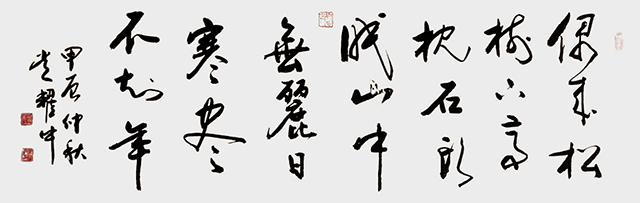 偶来松
树下高
枕石头
眠山中
無麗日
寒尽
不知年
甲辰仲秋
耀